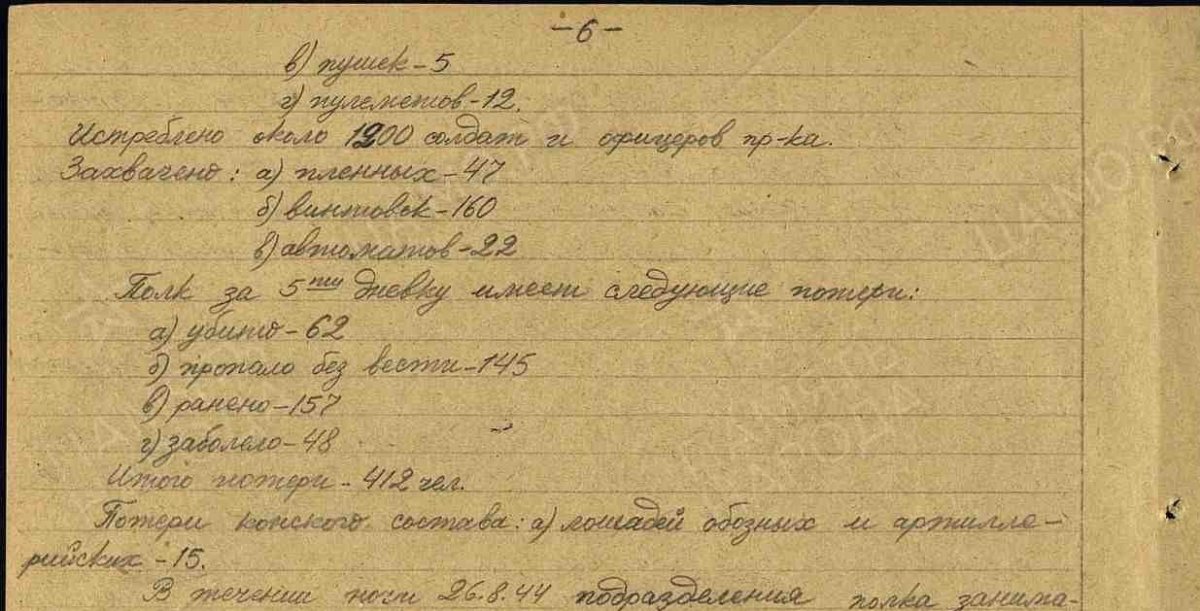 -6-
в) пушек-5
г) пулеметов-12.
Истреблено около 1200 солдат и офицеров пр-ка.
Захвачено: а) пленных-47
б) винтовок-160
в) автоматов-22
Полк за 5ти дневку имеет следующие потери:
а) убито-62
б) пропало без вести-145
в) ранено-157
г) заболело-48
Итого потери-412 чел.
Потери конского состава: а) лошадей обозных и артилле-
рийских-15.
В течении ночи 26.8.44 подразделения полка занима-